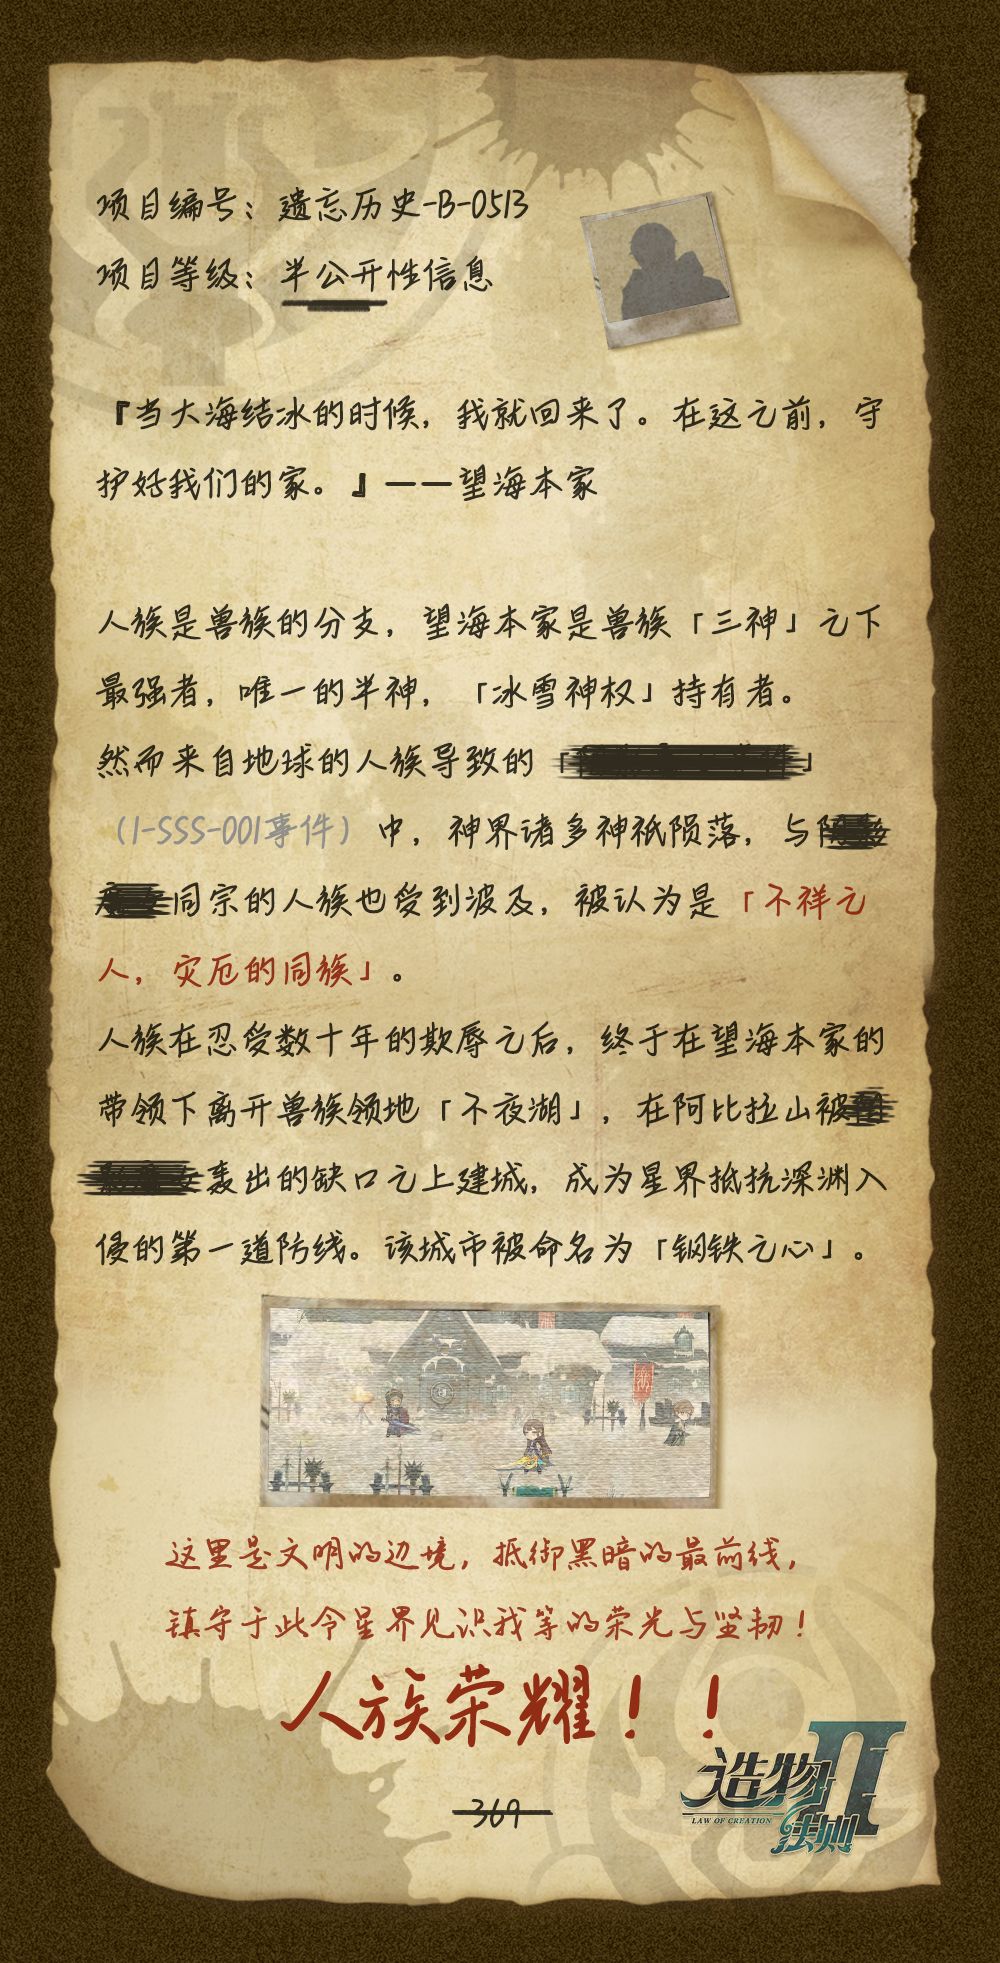 项目编号：遗忘历史-B-0513
项目等级：半公开性信息
『当大海结冰的时候，我就回来了。在这之前，守
护好我们的家。』——望海本家
人族是兽族的分支，望海本家是兽族「三神」之下
最强者，唯一的半神，「冰雪神权」持有者。
然而来自地球的人族导致的「」
（1-SSS-001事件）中，神界诸多神祇陨落，与
同宗的人族也受到波及，被认为是「不祥之
人，灾厄的同族」。
人族在忍受数十年的欺辱之后，终于在望海本家的
带领下离开兽族领地「不夜湖」，在阿比拉山被
轰出的缺口之上建城，成为星界抵抗深渊入
侵的第一道防线。该城市被命名为「钢铁之心」。
这里是文明的边境，抵御黑暗的最前线，
镇守于此令星界见识我等的荣光与坚韧！
人族荣耀！！
造物II
LAW OF CREATION
法则
369